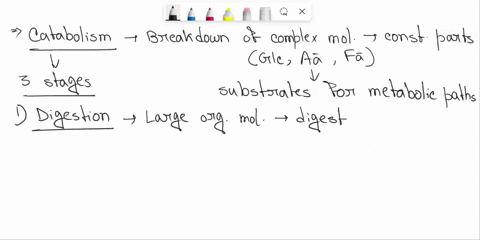 ⇒ Catabolism → Breakdown of complex mol. → const parts
(Glc, Aā, Fā)
↓ ↓
3 stages
substrates for metabolic paths
1) Digestion → Large org. mol. → digest